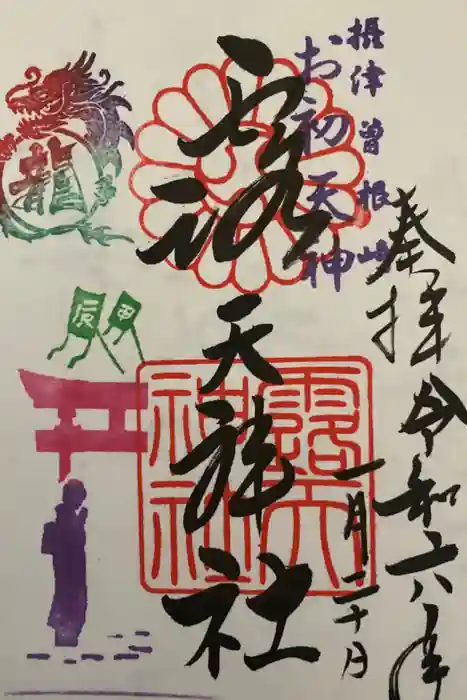 奉拝 令和六年
一月二十日
摂津曽根崎
お初天神
露天神社
露天神社
龍
甲
辰